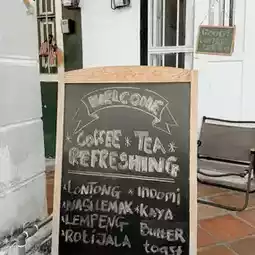 WELCOME
* COFFEE * TEA *
REFRESHING
• LONTONG * INDOMI
• NASI LEMAK * KAYA
• LEMPENG BUTTER
• ROTI JALA TOAST